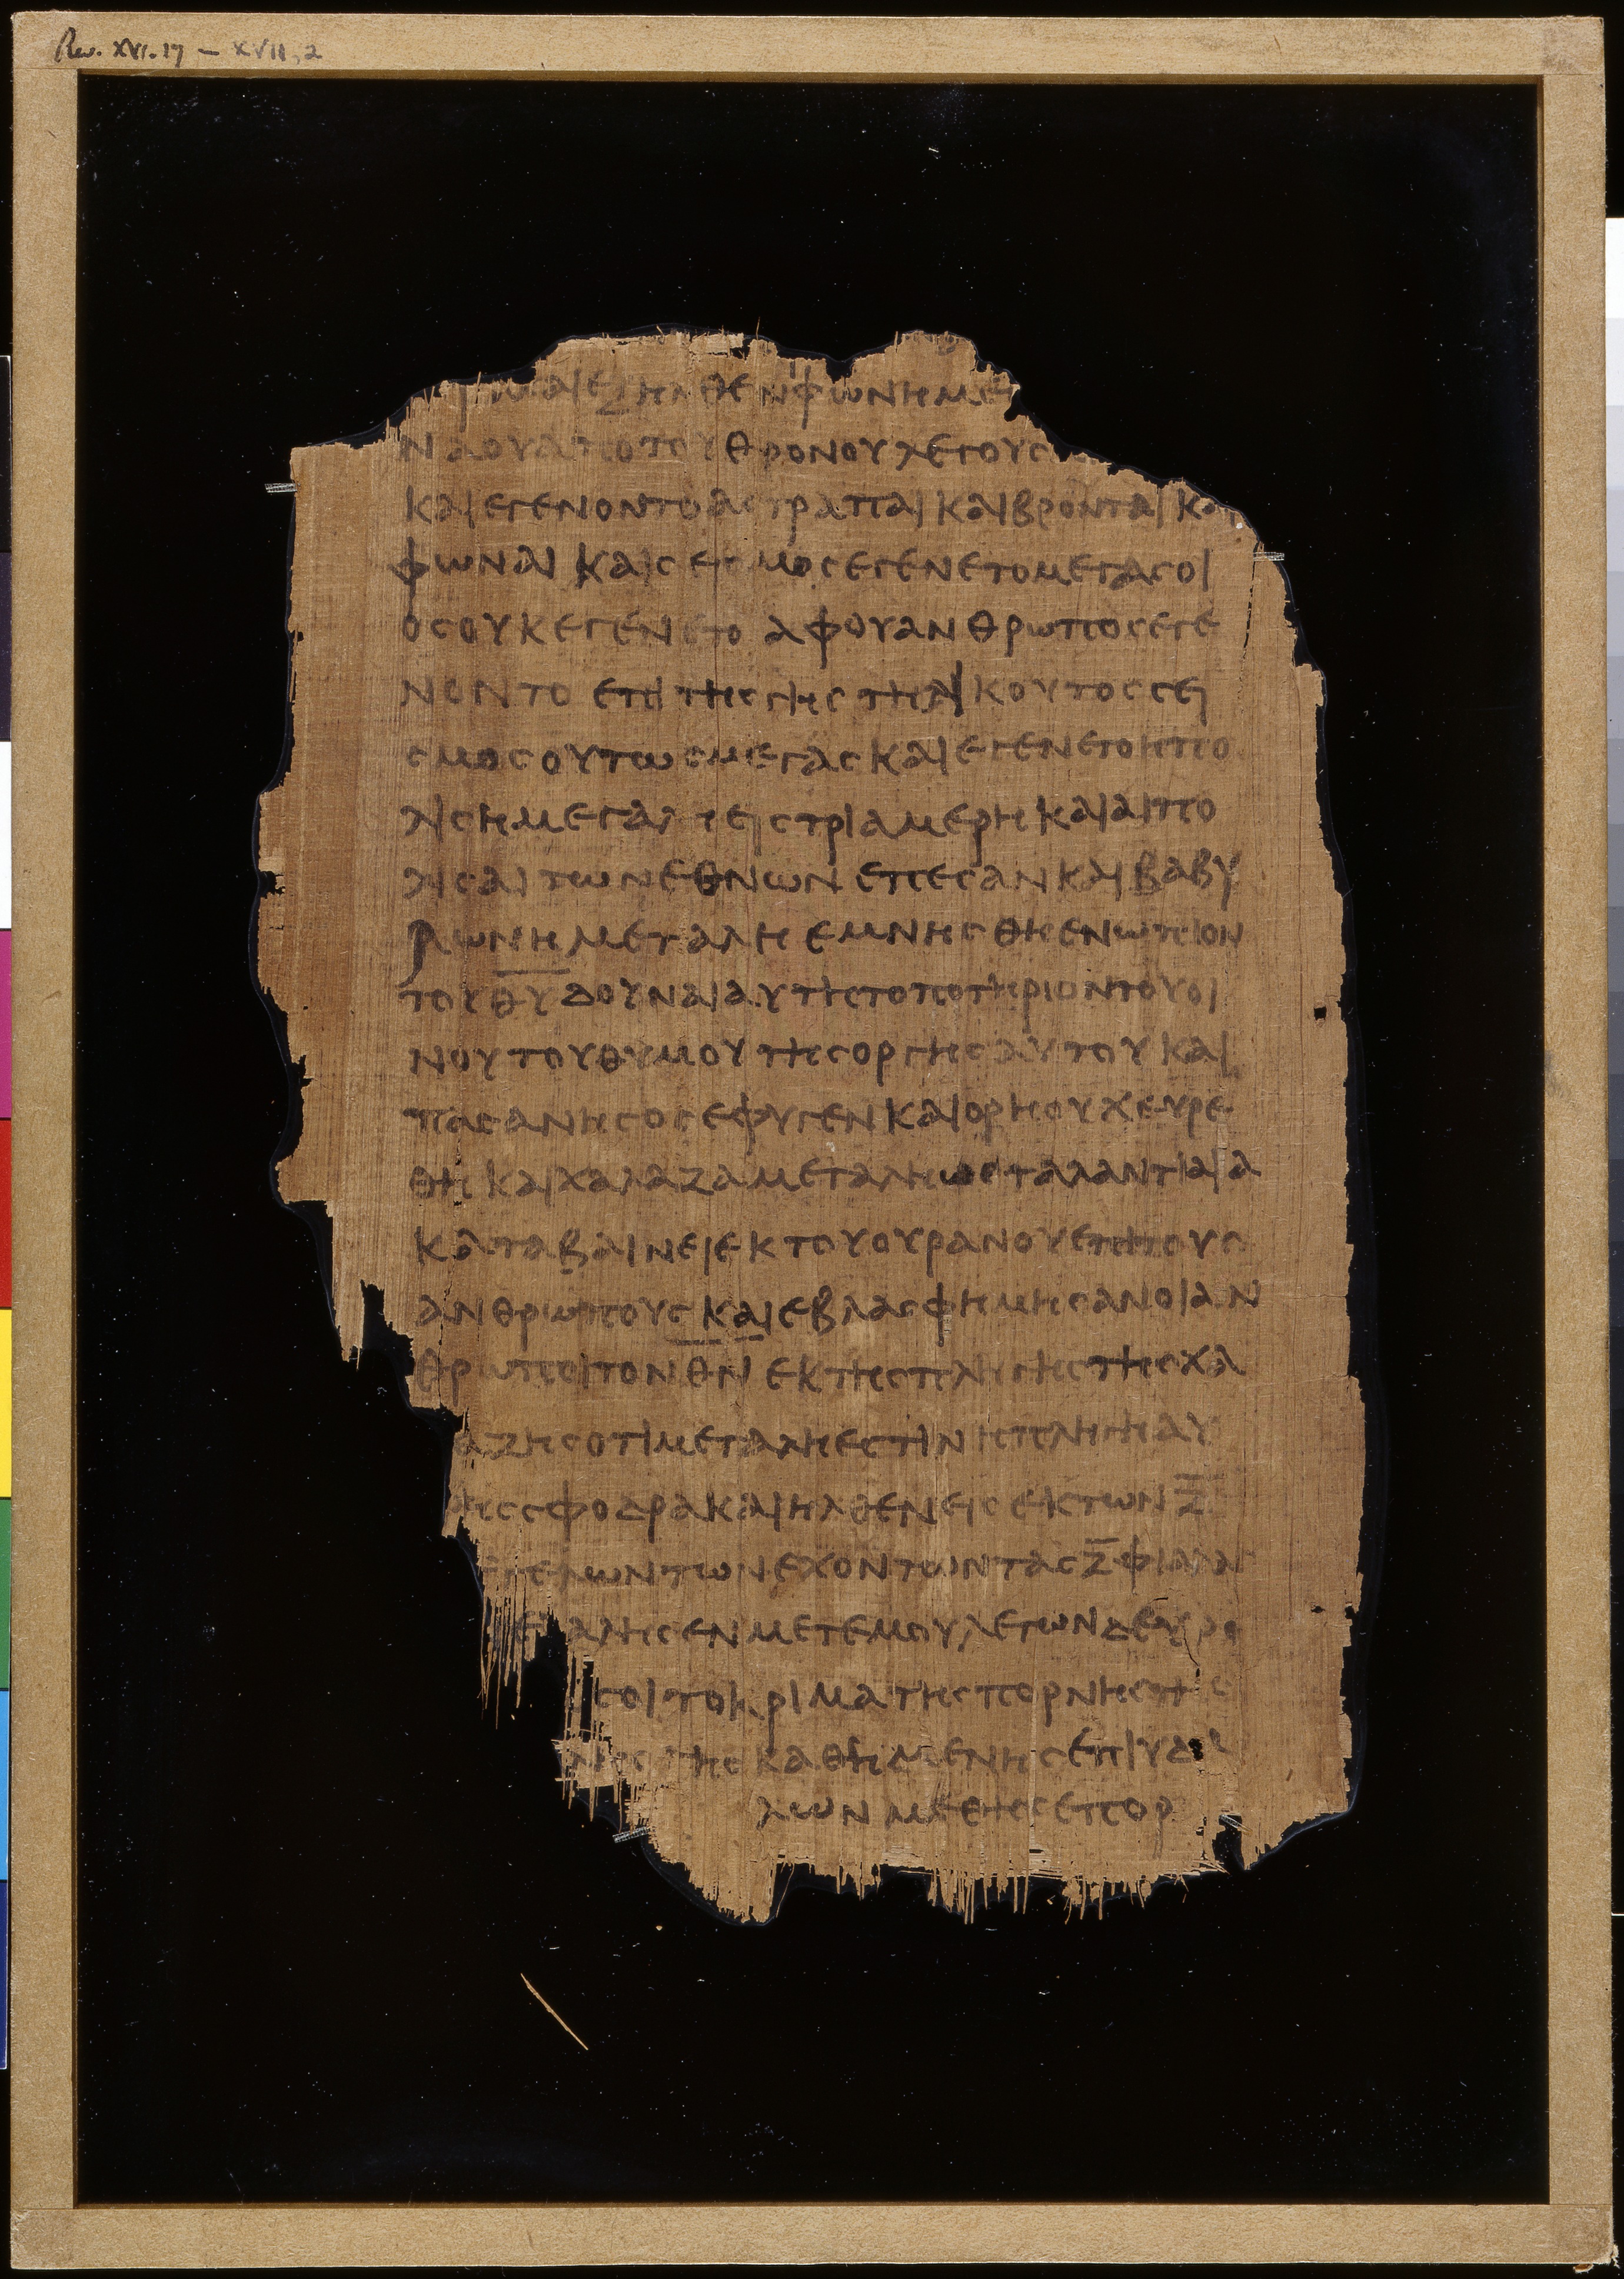 Rev. XVI.17 — XVII, 2
καιεξηλθενφωνημε
ναουαποτουθρονουλεγουσ
καιεγενοντοαστραπαικαιβρονταικαι
φωναικαισεισμοσεγενετομεγασοι
οσουκεγενετοαφουανθρωποσεγε
νοντοεπιτησγηστηλικουτοσσει
σμοσουτωσμεγασκαιεγενετοηπο
λισημεγαληειστριαμερηκαιαιπο
λισαιτωνεθνωνεπεσανκαιβαβυ
λωνημεγαληεμνησθηενωπιον
τουθ̅υ̅δουναιαυτηστοποτηριοντουοι
νουτουθυμουτησοργησαυτουκαι
πασανησοσεφυγενκαιορηουχευρε
θηκαιχαλαζαμεγαληωσταλαντιαια
καταβαινειεκτουουρανουεπιτουσ
ανθρωπουσκαιεβλασφημησανοιαν
θρωποιτονθ̅ν̅εκτησπληγηστησχα
αζησοτιμεγαληεστινηπληγηαυ
ησσφοδρακαιηλθενεισεκτωνζ̅
γελωντωνεχοντωντασζ̅φιαλα
ελαλησενμετεμουλεγωνδευρο
σοιτοκριματησπορνηστησ
ληστησκαθημενησεπιυδα
λωνμεθησεπορ